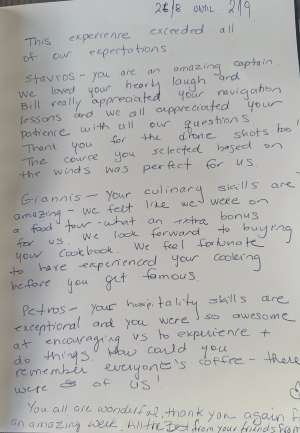 26/8 UNTIL 2/9
This experience exceeded all
of our expectations
Stavros - you are an amazing captain.
We loved your hearty laugh and
Bill really appreciated your navigation
lessons and we all appreciated your
patience with all our questions
Thank you for the drone shots too!
The course you selected based on
the winds was perfect for us.
Giannis - Your culinary skills are
amazing - we felt like we were on
a food tour - what an extra bonus
for us. We look forward to buying
your cookbook. We feel fortunate
to have experienced your cooking
before you get famous.
Petros - your hospitality skills are
exceptional and you were so awesome
at encouraging us to experience +
do things! How could you
remember everyone's coffee - there
were of us!
You all are wonderful, thank you again for
an amazing week. from your friends from